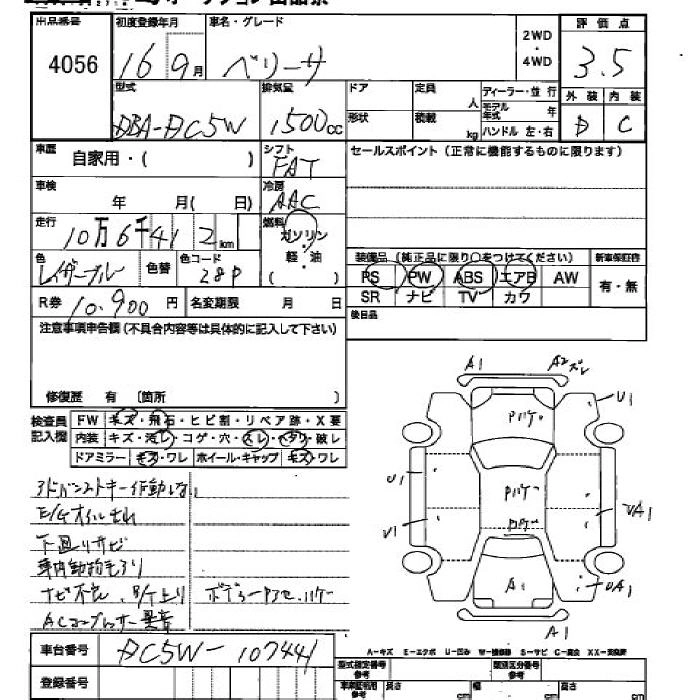 出品番号 初度登録年月 車名・グレード 2WD・4WD 評価点
4056 16 9月 ベリーサ 3.5
型式 排気量 ドア 定員 人 ディーラー・並行 外装 内装
DBA-DC5W 1500cc 形状 積載 kg モデル年式 年 ハンドル 左・右 D C
車歴 自家用・( ) シフト FAT セールスポイント(正常に機能するものに限ります)
車検 年 月( 日) 冷房 AAC
走行 10万6千412km 燃料 ガソリン・軽・油
色 レイザーブルー 色替 色コード 28P 装備品(純正品に限り○をつけてください) 新車保証書
PS PW ABS エアB AW 有・無
SR ナビ TV カワ
R券 10.900円 名変期限 月 日 後日品
注意事項申告欄(不具合内容等は具体的に記入して下さい)
修復歴 有 〔箇所 〕
検査員記入欄 FW キズ・飛石・ヒビ割・リペア跡・X要
内装 キズ・汚レ・コゲ・穴・スレ・ヘタリ・破レ
ドアミラー キズ・ワレ ホイール・キャップ キズ・ワレ
アドバンストキー作動しない
E/Gオイルもれ
下廻りサビ
車内動物毛あり
ナビ不良
ACコンプレッサー異音
A1 A2ズレ
U1
Pハゲ
U1 Pハゲ UA1
U1 Pハゲ
A1 UA1
A1
A-キズ E-エクボ U-凹み W-補修跡 S-サビ C-腐食 XX-交換済
車台番号 DC5W-107441
登録番号
型式指定番号 参考 類別区分番号 参考
車庫証明用 参考 長さ cm 幅 cm 高さ cm